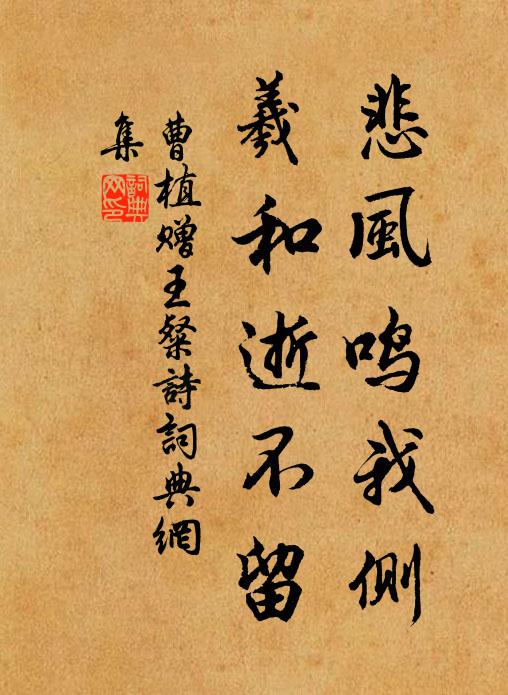 悲風鸣我側
羲和逝不留
曹植赠王粲詩詞典網
集
詞典
网印